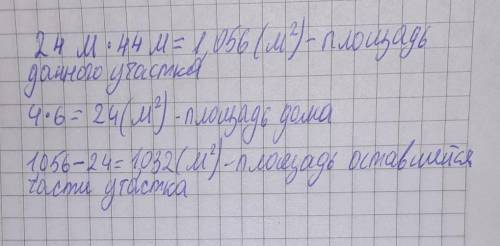 24 м · 44 м = 1,056 (м²) - площадь
данного участка
4·6 = 24 (м²) - площадь дома
1056 - 24 = 1032 (м²) - площадь оставшейся
части участка